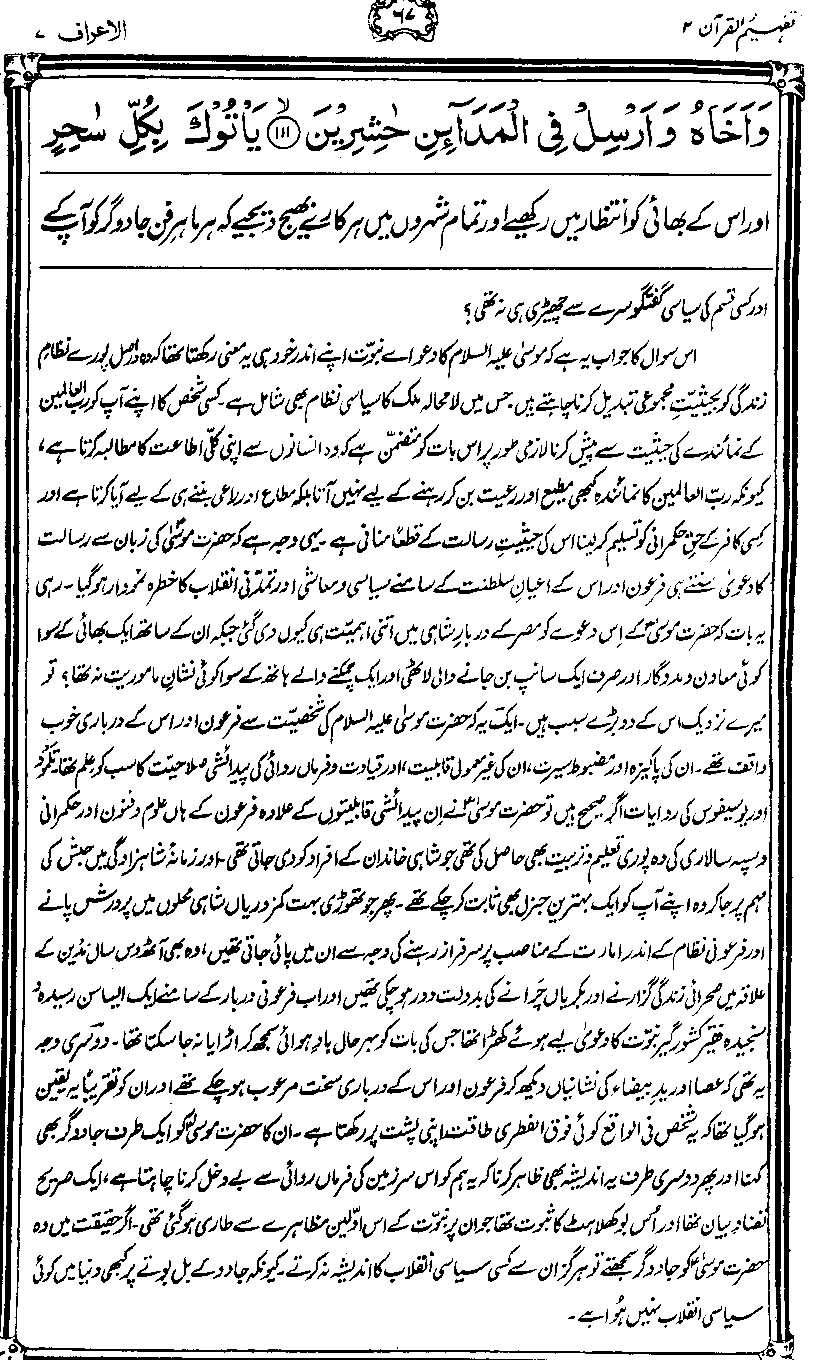 تفہیم القرآن ۲
۶۷
الاعراف ۷
وَاَخَاهُ وَاَرْسِلْ فِی الْمَدَآىِٕنِ حٰشِرِیْنَ ﴿۱۱۱﴾ۙ یَاْتُوْكَ بِكُلِّ سٰحِرٍ
اور اس کے بھائی کو انتظار میں رکھیے اور تمام شہروں میں ہرکارے بھیج دیجیے کہ ہر ماہر فن جادوگر کو آپ کے
اور کسی قسم کی سیاسی گفتگو سرے سے چھیڑی ہی نہ تھی؟
اس سوال کا جواب یہ ہے کہ موسیٰ علیہ السلام کا دعوائے نبوّت اپنے اندر خود ہی یہ معنی رکھتا تھا کہ وہ دراصل پورے نظامِ
زندگی کو بحیثیتِ مجموعی تبدیل کرنا چاہتے ہیں، جس میں لامحالہ ملک کا سیاسی نظام بھی شامل ہے۔ کسی شخص کا اپنے آپ کو ربّ العالمین
کے نمائندے کی حیثیت سے پیش کرنا لازمی طور پر اس بات کو متضمّن ہے کہ وہ انسانوں سے اپنی کُلّی اطاعت کا مطالبہ کرتا ہے،
کیونکہ ربّ العالمین کا نمائندہ کبھی مطیع اور رعیت بن کر رہنے کے لیے نہیں آتا بلکہ مطاع اور راعی بننے ہی کے لیے آیا کرتا ہے اور
کسی کافر کے حقِ حکمرانی کو تسلیم کر لینا اس کی حیثیتِ رسالت کے قطعاً منافی ہے۔ یہی وجہ ہے کہ حضرت موسیٰؑ کی زبان سے رسالت
کا دعویٰ سنتے ہی فرعون اور اس کے اعیانِ سلطنت کے سامنے سیاسی و معاشی اور تمدّنی انقلاب کا خطرہ نمودار ہو گیا۔ رہی
یہ بات کہ حضرت موسیٰؑ کے اس دعوے کو مصر کے دربارِ شاہی میں اتنی اہمیّت ہی کیوں دی گئی جبکہ ان کے ساتھ ایک بھائی کے سوا
کوئی معاون و مددگار اور صرف ایک سانپ بن جانے والی لاٹھی اور ایک چمکنے والے ہاتھ کے سوا کوئی نشانِ ماموریت نہ تھا؟ تو
میرے نزدیک اس کے دو بڑے سبب ہیں۔ ایک یہ کہ حضرت موسیٰ علیہ السلام کی شخصیّت سے فرعون اور اس کے درباری خوب
واقف تھے۔ ان کی پاکیزہ اور مضبوط سیرت، ان کی غیر معمولی قابلیت، اور قیادت و فرماں روائی کی پیدائشی صلاحیّت کا سب کو علم تھا۔ تلمود
اور یوسیفوس کی روایات اگر صحیح ہیں تو حضرت موسیٰؑ نے اِن پیدائشی قابلیتوں کے علاوہ فرعون کے ہاں علوم و فنون اور حکمرانی
و سپہ سالاری کی وہ پوری تعلیم و تربیت بھی حاصل کی تھی جو شاہی خاندان کے افراد کو دی جاتی تھی۔ اور زمانۂ شاہزادگی میں حبش کی
مہم پر جا کر وہ اپنے آپ کو ایک بہترین جنرل بھی ثابت کر چکے تھے۔ پھر جو تھوڑی بہت کمزوریاں شاہی محلوں میں پرورش پانے
اور فرعونی نظام کے اندر امارت کے مناصب پر سرفراز رہنے کی وجہ سے ان میں پائی جاتی تھیں، وہ بھی آٹھ دس سال مَدْیَن کے
علاقہ میں صحرائی زندگی گزارنے اور بکریاں چَرانے کی بدولت دور ہو چکی تھیں اور اب فرعونی دربار کے سامنے ایک ایسا سن رسیدہ و
سنجیدہ فقیرِ کشور گیر نبوّت کا دعویٰ لیے ہوئے کھڑا تھا جس کی بات کو بہرحال بادِ ہوائی سمجھ کر اڑایا نہ جا سکتا تھا۔ دوسری وجہ
یہ تھی کہ عصا اور یدِ بیضاء کی نشانیاں دیکھ کر فرعون اور اس کے درباری سخت مرعوب ہو چکے تھے اور ان کو تقریباً یہ یقین
ہو گیا تھا کہ یہ شخص فی الواقع کوئی فوق الفطری طاقت اپنی پشت پر رکھتا ہے۔ ان کا حضرت موسیٰؑ کو ایک طرف جادوگر بھی
کہنا اور پھر دوسری طرف یہ اندیشہ بھی ظاہر کرنا کہ یہ ہم کو اس سرزمین کی فرماں روائی سے بے دخل کرنا چاہتا ہے، ایک صریح
تضاد بیان تھا اور اُس بوکھلاہٹ کا ثبوت تھا جو ان پر نبوّت کے اس اوّلین مظاہرے سے طاری ہو گئی تھی۔ اگر حقیقت میں وہ
حضرت موسیٰؑ کو جادوگر سمجھتے تو ہرگز ان سے کسی سیاسی انقلاب کا اندیشہ نہ کرتے۔ کیونکہ جادو کے بل بوتے پر کبھی دنیا میں کوئی
سیاسی انقلاب نہیں ہُوا ہے۔